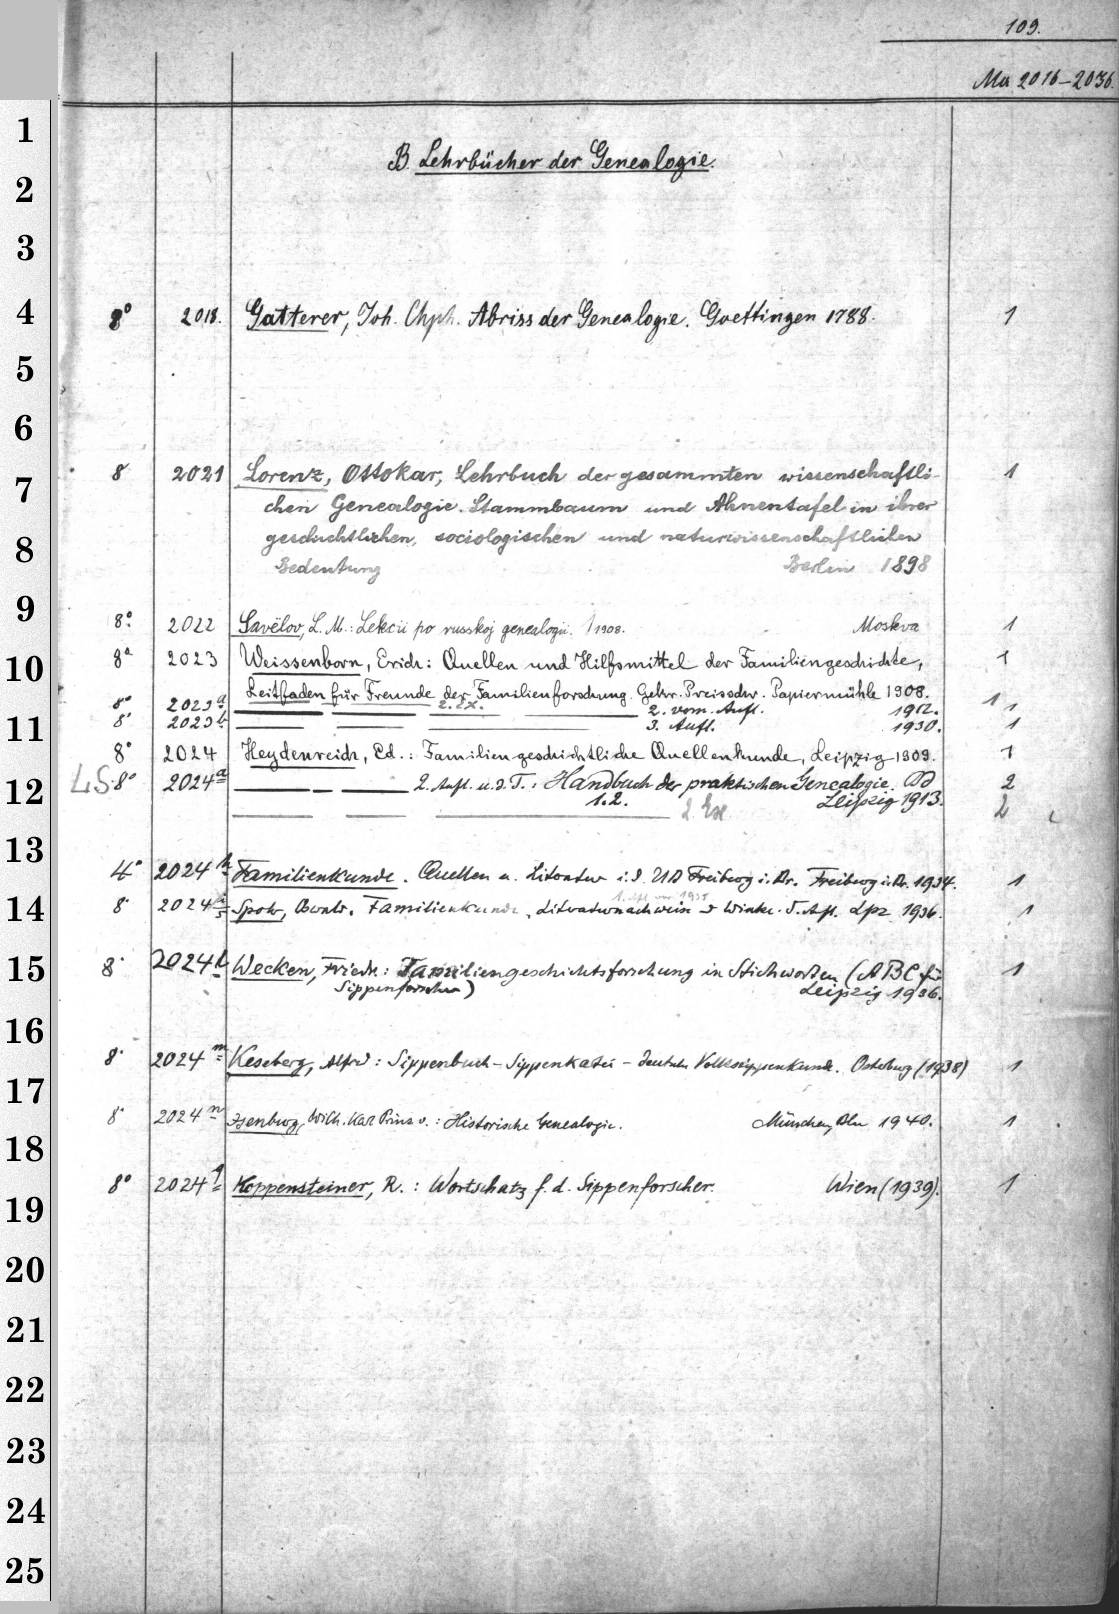 109.
Ma 2016-2036.
B. Lehrbücher der Genealogie.
8° 2018. Gatterer, Joh. Chph. Abriss der Genealogie. Goettingen 1788. 1
8 2021 Lorenz, Ottokar, Lehrbuch der gesammten wissenschaftli- 1
chen Genealogie. Stammbaum und Ahnentafel in ihrer
geschichtlichen, sociologischen und naturwissenschaftlichen
Bedeutung Berlin 1898
8° 2022 Savëlov, L. M.: Lekcii po russkoj genealogii. 1908. Moskva 1
8° 2023 Weissenborn, Erich: Quellen und Hilfsmittel der Familiengeschichte, 1
Leitfaden für Freunde der Familienforschung. Gekr. Preisschr. Papiermühle 1908.
8° 2023a 2. Ex. 2. verm. Aufl. 1912. 1 1
8° 2023b 3. Aufl. 1930. 1
8° 2024 Heydenreich, Ed.: Familiengeschichtliche Quellenkunde, Leipzig 1909. 1
LS 8° 2024a 2. Aufl. u. d. T.: Handbuch der praktischen Genealogie. Bd 2
1.2. Leipzig 1913.
2 Ex 2
4° 2024h Familienkunde. Quellen u. Literatur i. d. Freiberg i. Sa. Freiberg i. Sa. 1934. 1
8° 2024 Spohr, Oswald. Familienkunde. Literaturnachweis 5. Afl. Lpz 1936. 1
8° 2024l Wecken, Friedr.: Familiengeschichtsforschung in Stichworten (ABC für 1
Sippenforscher) Leipzig 1936.
8° 2024m Keseberg, Alfred: Sippenbuch - Sippenkartei - deutsche Volkssippenkunde. Osterburg (1938) 1
8° 2024n Isenburg, Wilh. Karl Prinz v.: Historische Genealogie. München, Bln 1940. 1
8° 2024q Koppensteiner, R.: Wortschatz f. d. Sippenforscher. Wien (1939). 1
1
2
3
4
5
6
7
8
9
10
11
12
13
14
15
16
17
18
19
20
21
22
23
24
25